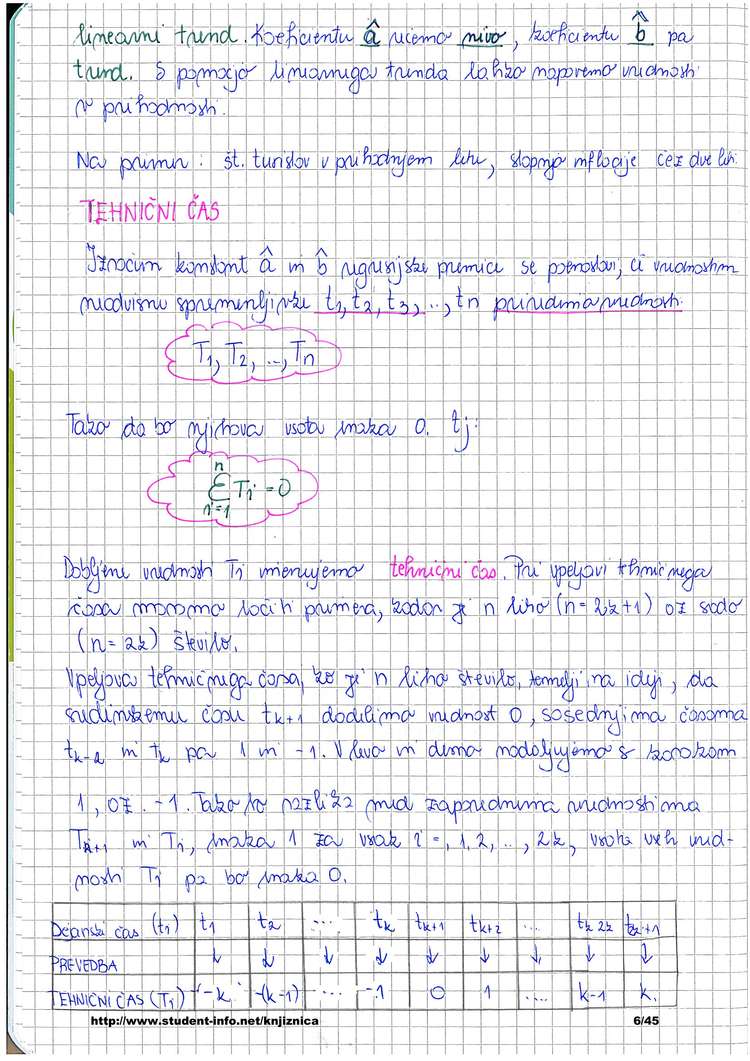 linearni trend. Koeficientu â rečemo nivo, koeficientu b̂ pa
trend. S pomočjo linearnega trenda lahko napovemo vrednosti
v prihodnosti.
Na primer: št. turistov v prihodnjem letu, stopnjo inflacije čez dve leti.
TEHNIČNI ČAS
Izračun konstant â in b̂ regresijske premice se poenostavi, če vrednostim
neodvisne spremenljivke t1, t2, t3, ..., tn priredimo vrednosti.
T1, T2, ..., Tn
Tako da bo njihova vsota enaka 0. tj:
n
Σ Ti = 0
i=1
Dobljene vrednosti Ti imenujemo tehnični čas. Pri vpeljavi tehničnega
časa moramo ločiti primera, kadar je n liho (n=2k+1) oz sodo
(n=2k) število.
Vpeljava tehničnega časa, ko je n liho število, temelji na ideji, da
sredinskemu času tk+1 dodelimo vrednost 0, sosednjima časoma
tk-2 in tk pa 1 in -1. V levo in desno nadaljujemo s korakom
1, oz. -1. Tako bo razlika med zaporednima vrednostima
Ti+1 in Ti, enaka 1 za vsak i=,1,2,...,2k, vsota vseh vred-
nosti Ti pa bo enaka 0.
Dejanski čas (ti) t1 t2 ... tk tk+1 tk+2 ... tk 2k t2k+1
PREVEDBA ↓ ↓ ↓ ↓ ↓ ↓ ↓ ↓ ↓
TEHNIČNI ČAS (Ti) -k -(k-1) ... -1 0 1 .... k-1 k.
http://www.student-info.net/knjiznica 6/45